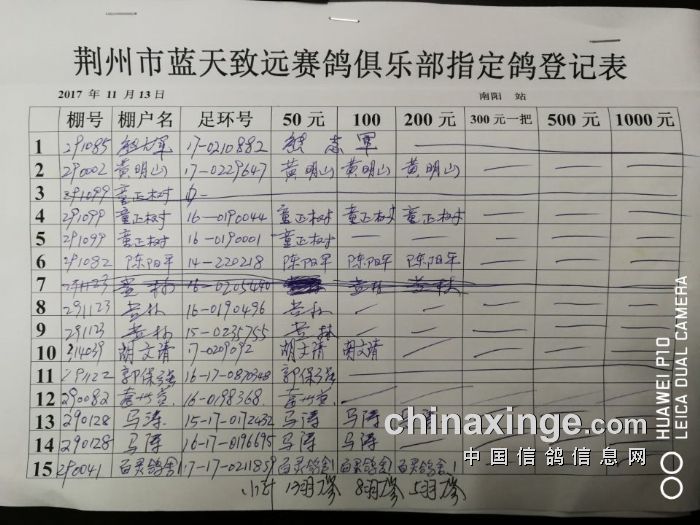 荆州市蓝天致远赛鸽俱乐部指定鸽登记表
2017 年 11 月 13 日 南阳 站
棚号 棚户名 足环号 50 元 100 200 元 300 元一把 500 元 1000 元
1 291085 17-0210882 志军
2 290002 黄明山 17-0229647 黄明山 黄明山 黄明山
3 291099 童正树
4 291099 童正树 16-0190044 童正树 童正树 童正树
5 291099 童正树 16-0190001 童正树
6 291082 陈阳平 14-220218 陈阳平 陈阳平 陈阳平
7 291123 16-0205440
8 291123 16-0190496
9 291123 15-0235755
10 胡文清 17-0209092 胡文清 胡文清
11 郭保强 16-17-0870348 郭保强
12 290082 16-0198368
13 290128 马涛 15-17-0172432 马涛 马涛
14 290128 马涛 16-17-0196695 马涛 马涛
15 290041 百灵鸽舍 17-17-0211859 百灵鸽舍 百灵鸽舍 百灵鸽舍
小计 13羽 8羽 5羽
chinaxinge.com
中国信鸽信息网
HUAWEI P10
LEICA DUAL CAMERA